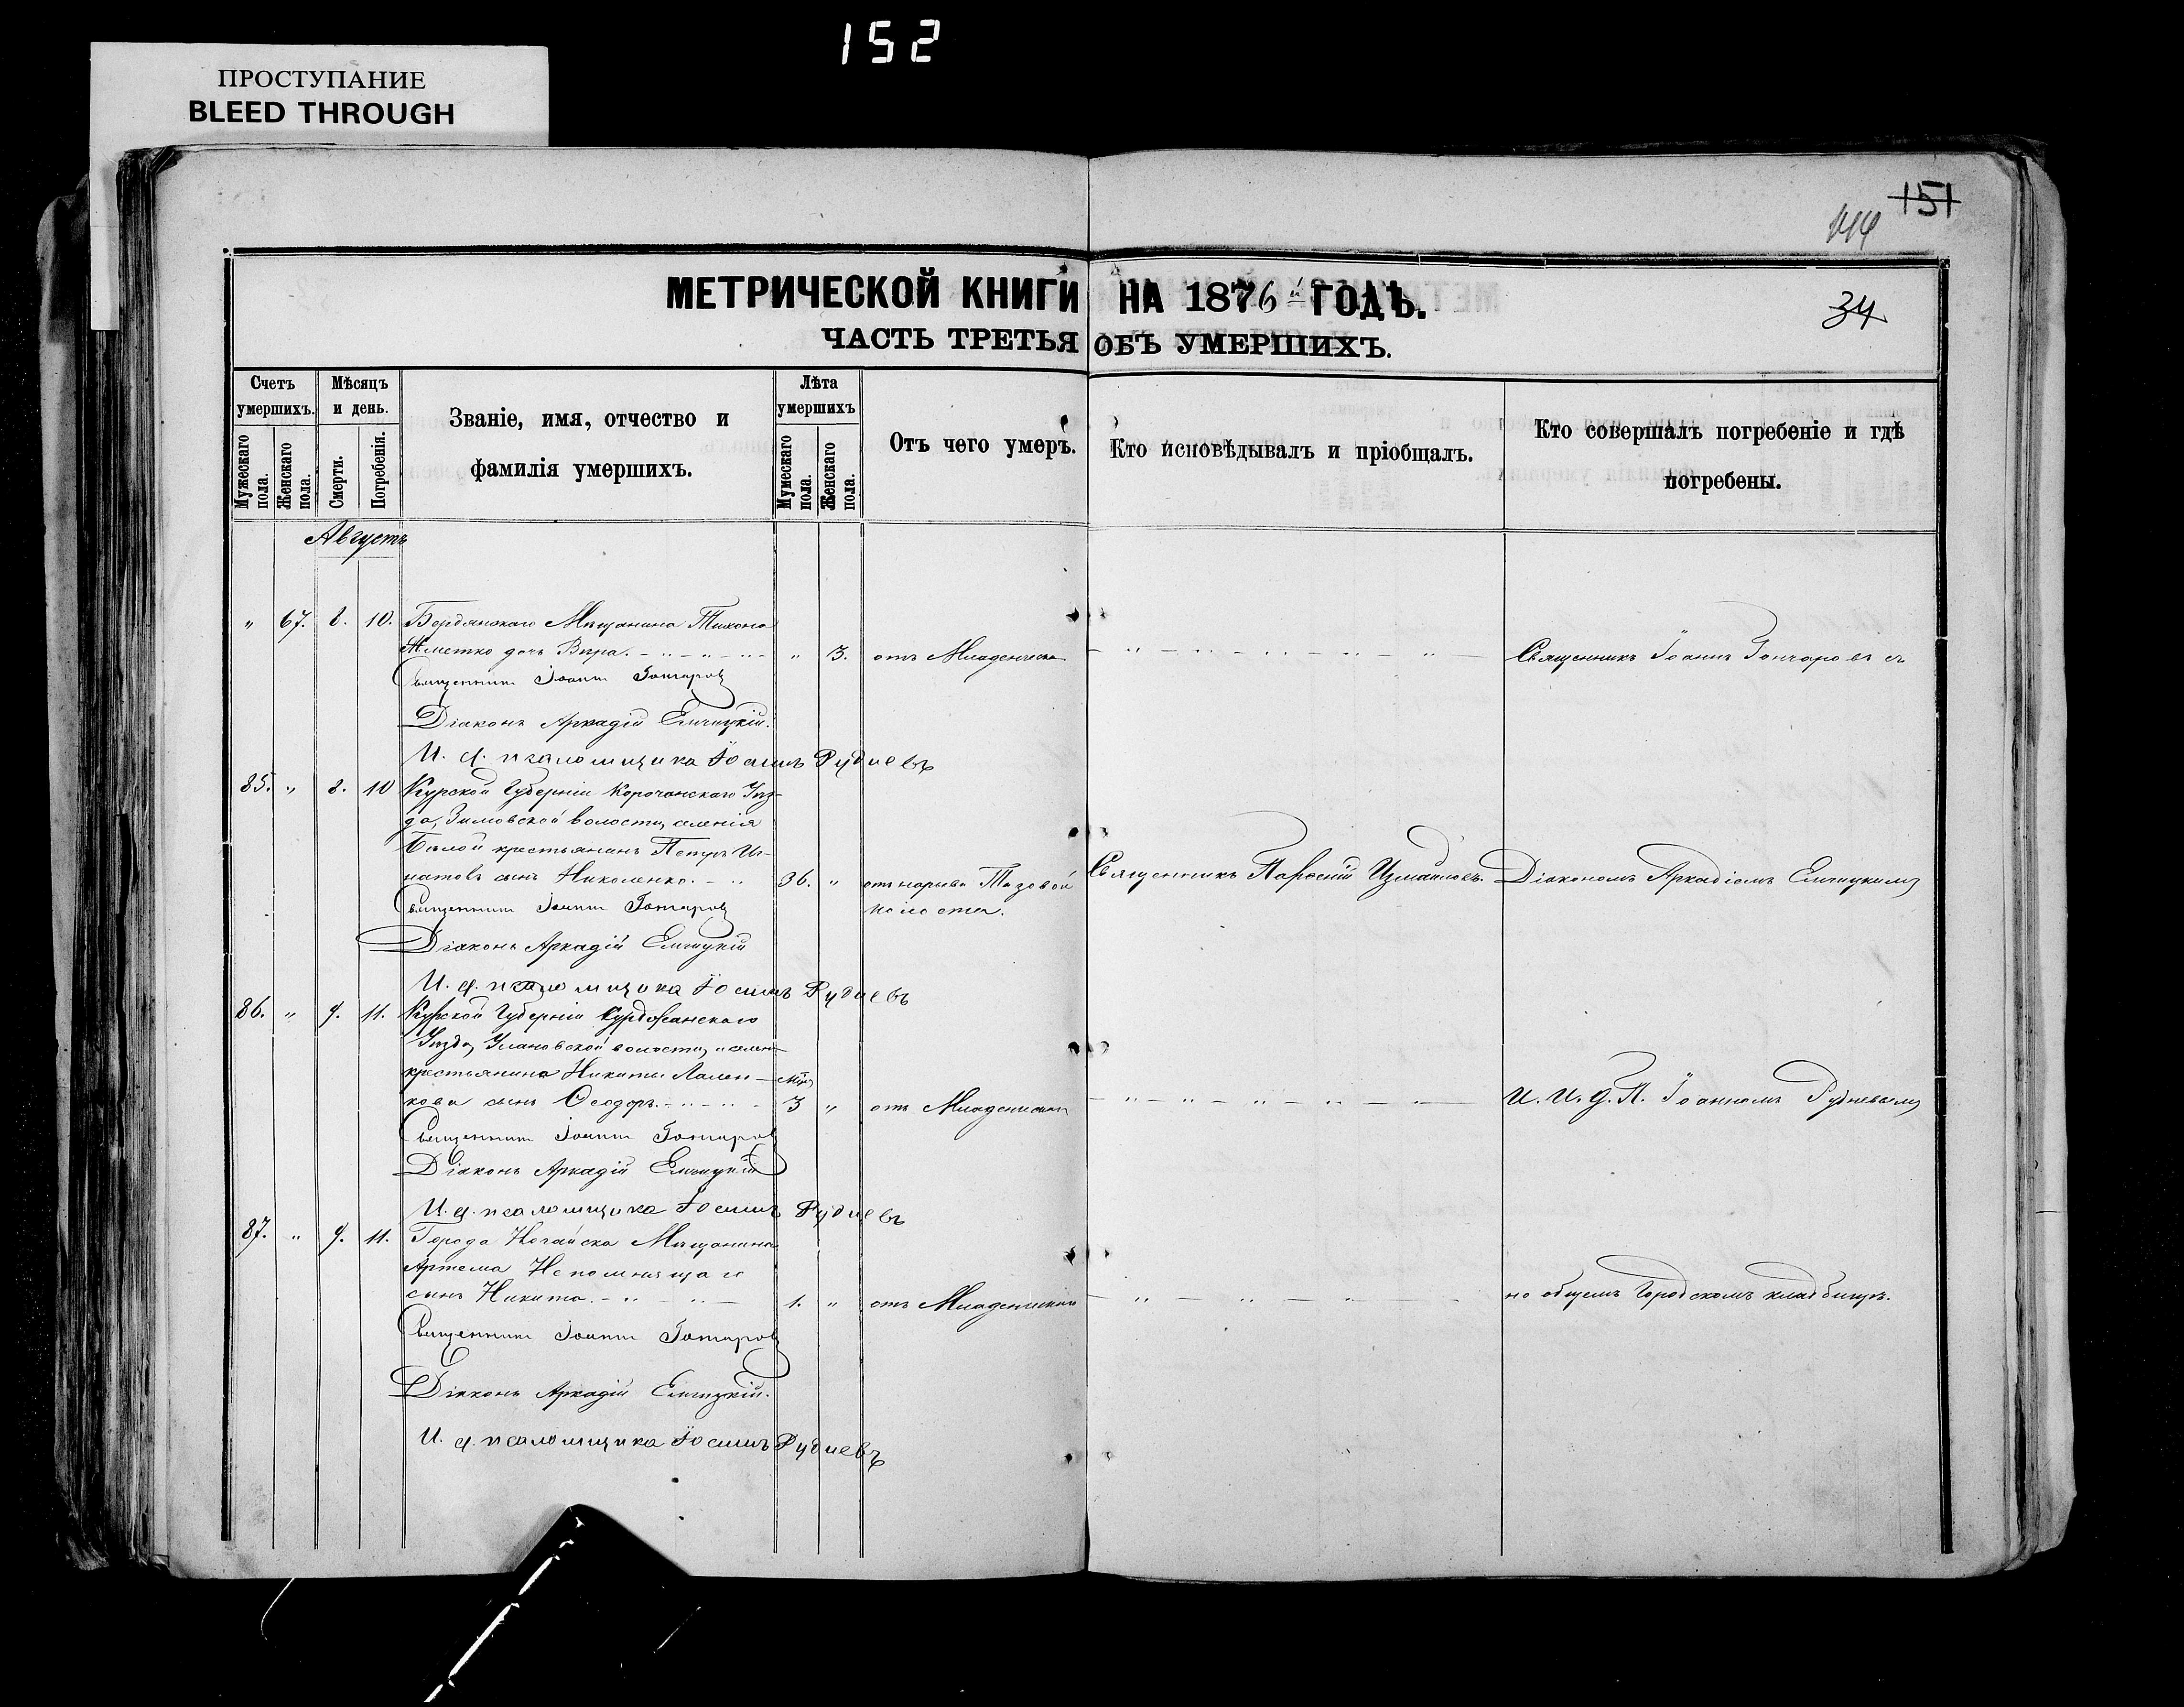 152
ПРОСТУПАНИЕ
BLEED THROUGH
151
34
МЕТРИЧЕСКОЙ КНИГИ НА 1876й ГОДЪ.
ЧАСТЬ ТРЕТЬЯ ОБЪ УМЕРШИХЪ.
Счетъ умершихъ.
Мужескаго пола.
Женскаго пола.
Мѣсяцъ и день.
Смерти.
Погребенія.
Званіе, имя, отчество и
фамилія умершихъ.
Лѣта умершихъ
Мужескаго пола.
Женскаго пола.
Отъ чего умеръ.
Кто исповѣдывалъ и пріобщалъ.
Кто совершалъ погребеніе и гдѣ
погребены.
Августъ
" 67. 8. 10. Бердянскаго Мѣщанина Тихона
дочь Вѣра. " 3. отъ Младенческ Священникъ Іоаннъ Гончаровъ съ
Священникъ Іоаннъ Гончаровъ
Діаконъ Аркадій Елчицкій.
И. д. псаломщика Іоаннъ Рудневъ
85. " 8. 10 Курской Губерніи Корочанскаго Уѣз-
да, Зимовской волости, селенія
Бѣлой крестьянинъ Петръ Иг-
натовъ сынъ Николенко. 36. " отъ нарыва Тазовой Священникъ Парѳеній Измаиловъ. Діакономъ Аркадіемъ Елчицкимъ
Священникъ Іоаннъ Гончаровъ
Діаконъ Аркадій Елчицкій
И. д. псаломщика Іоаннъ Рудневъ
86. " 9. 11. Курской Губерніи
Уѣзда, волости, и селен
крестьянина Никиты Лален- мѣс
кова сынъ Ѳеодоръ. 3 " отъ Младенческ И. И. д. П. Іоанномъ Рудневымъ
Священникъ Іоаннъ Гончаровъ
Діаконъ Аркадій Елчицкій
И. д. псаломщика Іоаннъ Рудневъ
87. " 9. 11. Города Ногайска Мѣщанина
Артема Непомнящаго
сынъ Никита. 1. " отъ Младенческой на общемъ Городскомъ кладбищѣ.
Священникъ Іоаннъ Гончаровъ
Діаконъ Аркадій Елчицкій.
И. д. псаломщика Іоаннъ Рудневъ